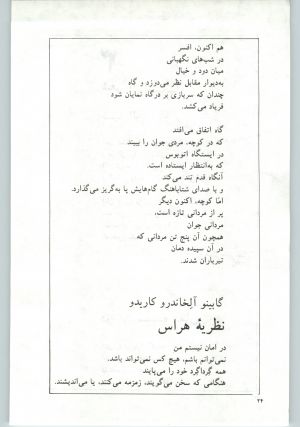 هم اکنون، افسر
در شب‌های نگهبانی
میان دود و خیال
به‌دیوار مقابل نظر می‌دوزد و گاه
چندان که سربازی بر درگاه نمایان شود
فریاد می‌کشد.
گاه اتفاق می‌افتد
که در کوچه، مردی جوان را ببیند
در ایستگاه اتوبوس
که به‌انتظار ایستاده است.
آنگاه قدم تند می‌کند
و با صدای شتاباهنگ گام‌هایش پا به‌گریز می‌گذارد.
امّا کوچه، اکنون دیگر
پر از مردانی تازه است،
مردانی جوان
همچون آن پنج تن مردانی که
در آن سپیده دمان
تیرباران شدند.
گابینو آلخاندرو کاریدو
نظریهٔ هراس
در امان نیستم من
نمی‌توانم باشم، هیچ کس نمی‌تواند باشد.
همه گرداگرد خود را می‌پایند
هنگامی که سخن می‌گویند، زمزمه می‌کنند، یا می‌اندیشند.
۳۴